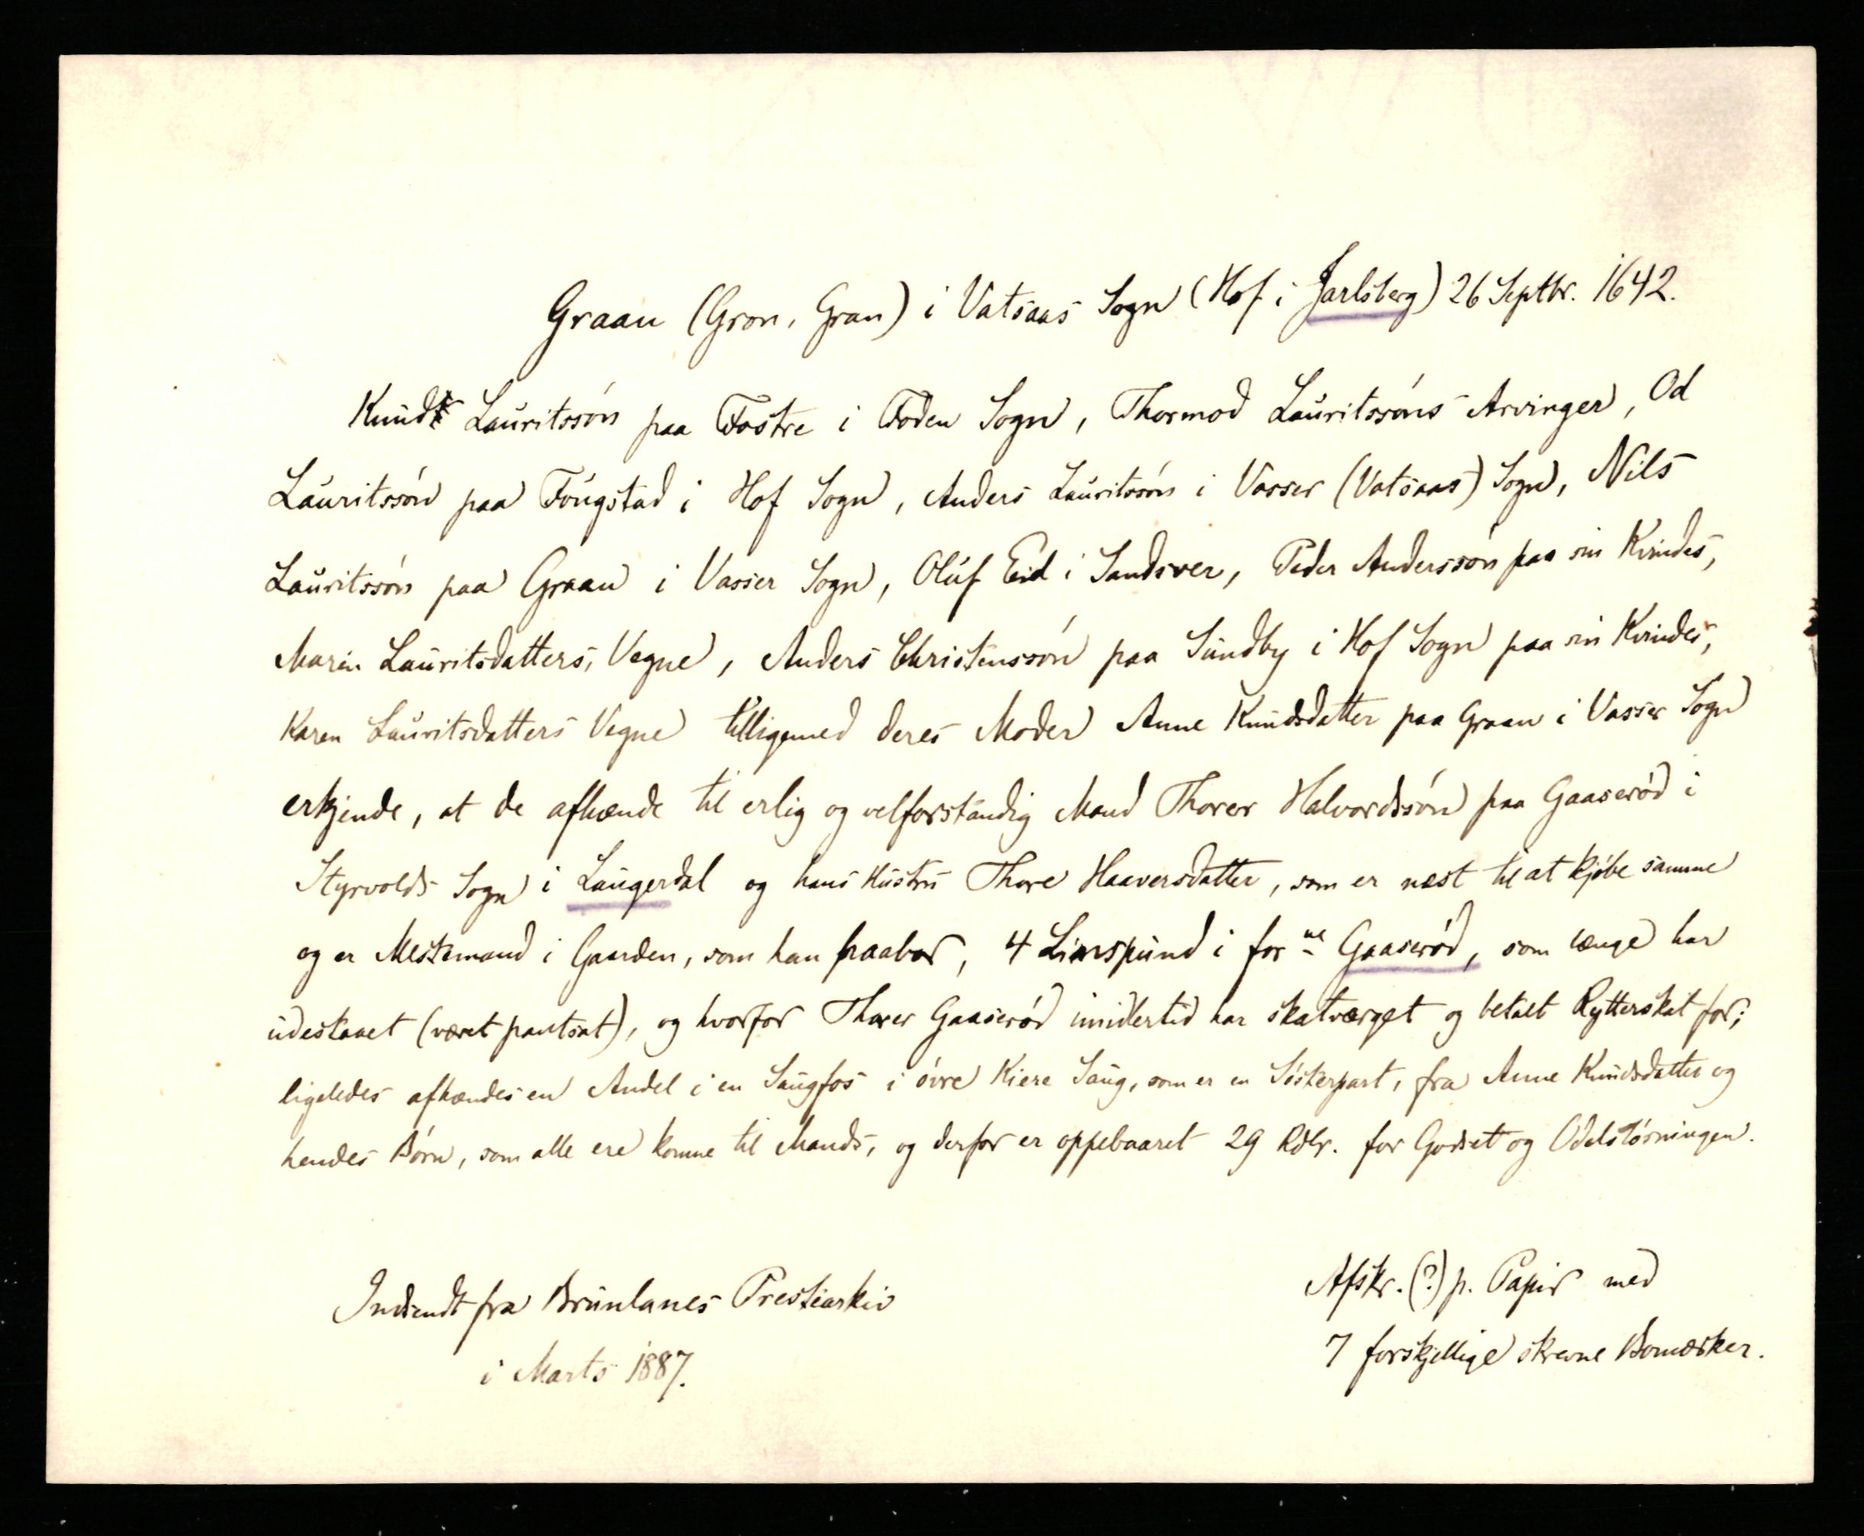 Graau (Gron, Gran) i Vatsaas Sogn (Hof i Jarlsberg) 26 Septbr. 1642.
Knud Lauritssön paa Fostre i Foden Sogn, Thormod Lauritssöns Arvinger, Od
Lauritssön paa Föugstad i Hof Sogn, Anders Lauritssön i Vasser (Vatsaas) Sogn, Nils
Lauritssön paa Graau i Vasser Sogn, Oluf Eid i Sandsver, Peder Anderssön paa sin Kvindes,
Maren Lauritsdatters, Vegne, Anders Christenssön paa Sundby i Hof Sogn paa sin Kvindes,
Karen Lauritsdatters Vegne tilligemed deres Moder Anne Knudsdatter paa Graau i Vasser Sogn
erkjende, at de afhænde til erlig og velforstandig Mand Thorer Halvordssön paa Gaaseröd i
Styrvolds Sogn i Laugerdal og hans Hustru Thore Haaversdatter, som er næst til at kjöbe samme
og er Mestemand i Gaarden, som han paabor, 4 Linspund i forne Gaaseröd, som længe har
udestaaet (været pantsat), og hvorfor Thorer Gaaseröd imidlertid har skatværget og betalt Rytterskat for;
ligeledes afhændes en Andel i en Saugfos i övre Kiere Saug, som er en Södsterpart, fra Anne Knudsdatter og
hendes Börn, som alle ere komne til Mands, og derfor er oppebaaret 29 Rdlr. for Godset og Odelslösningen.
Indsendt fra Brunlanes Prestearkiv
i Marts 1887.
Afskr. (?) p. Papir med
7 forskjellige skrevne Bomærker.